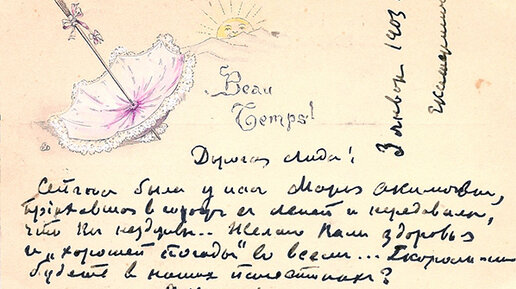 Beau
Temps!
3 января 1903.
Дорогая Лида!
Сейчас была у нас Мария Акимовна,
приехавшая в город и передавала,
что Вы нездоровы.. Желаю Вам здоровья
и „хорошей погоды“ во всем... Скоро ли
будете в наших палестинах?